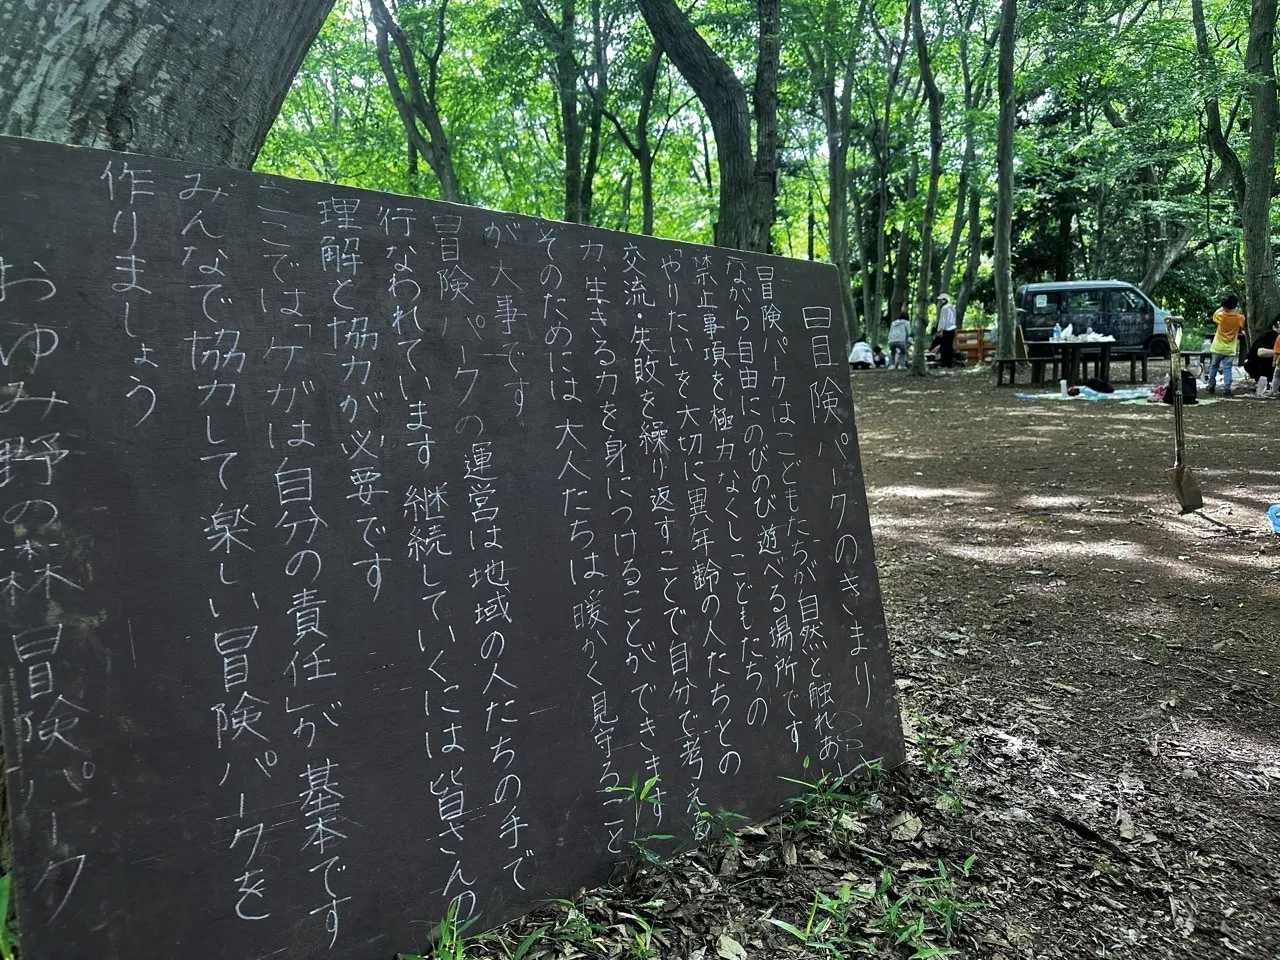 冒険パークのきまり
冒険パークはこどもたちが自然と触れあい
ながら自由にのびのび遊べる場所です
禁止事項を極力なくしこどもたちの
「やりたい」を大切に異年齢の人たちとの
交流・失敗を繰り返すことで自分で考える
力、生きる力を身につけることができます
そのためには大人たちは暖かく見守ること
が大事です
冒険パークの運営は地域の人たちの手で
行なわれています 継続していくには皆さんの
理解と協力が必要です
ここでは「ケガは自分の責任」が基本です
みんなで協力して楽しい冒険パークを
作りましょう
おゆみ野の森冒険パーク